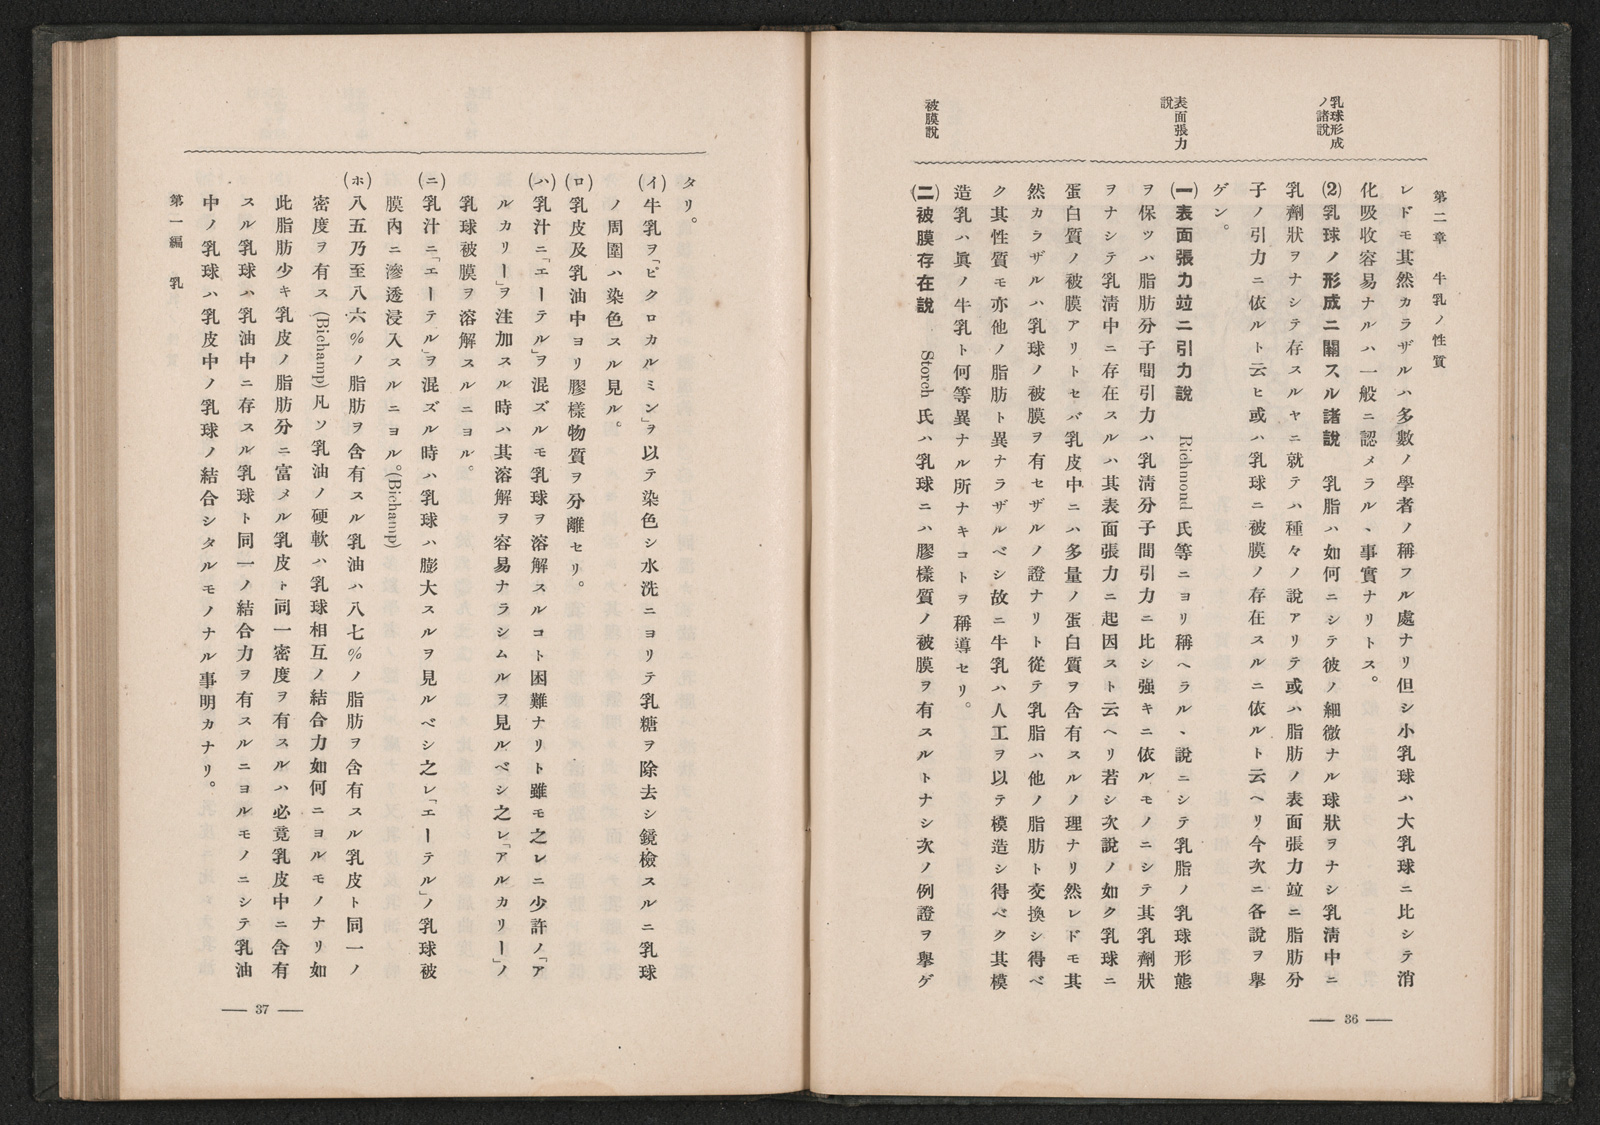 第二章　牛乳ノ性質
レドモ其然カラザルハ多數ノ學者ノ稱フル處ナリ但シ小乳球ハ大乳球ニ比シテ消
化吸收容易ナルハ一般ニ認メラルヽ事實ナリトス。
乳球形成
ノ諸說
(2)乳球ノ形成ニ關スル諸說　乳脂ハ如何ニシテ彼ノ細微ナル球狀ヲナシ乳淸中ニ
乳劑狀ヲナシテ存スルヤニ就テハ種々ノ說アリテ或ハ脂肪ノ表面張力竝ニ脂肪分
子ノ引力ニ依ルト云ヒ或ハ乳球ニ被膜ノ存在スルニ依ルト云ヘリ今次ニ各說ヲ擧
ゲン。
表面張力
說
(一)表面張力竝ニ引力說　Richmond 氏等ニヨリ稱ヘラルヽ說ニシテ乳脂ノ乳球形態
ヲ保ツハ脂肪分子間引力ハ乳淸分子間引力ニ比シ强キニ依ルモノニシテ其乳劑狀
ヲナシテ乳淸中ニ存在スルハ其表面張力ニ起因スト云ヘリ若シ次說ノ如ク乳球ニ
蛋白質ノ被膜アリトセバ乳皮中ニハ多量ノ蛋白質ヲ含有スルノ理ナリ然レドモ其
然カラザルハ乳球ノ被膜ヲ有セザルノ證ナリト從テ乳脂ハ他ノ脂肪ト交換シ得ベ
ク其性質モ亦他ノ脂肪ト異ナラザルベシ故ニ牛乳ハ人工ヲ以テ模造シ得ベク其模
造乳ハ眞ノ牛乳ト何等異ナル所ナキコトヲ稱導セリ。
被膜說
(二)被膜存在說　Storch 氏ハ乳球ニハ膠樣質ノ被膜ヲ有スルトナシ次ノ例證ヲ擧ゲ
— 36 —
タリ。
(イ)牛乳ヲ「ピクロカルミン」ヲ以テ染色シ水洗ニヨリテ乳糖ヲ除去シ鏡檢スルニ乳球
ノ周圍ハ染色スル見ル。
(ロ)乳皮及乳油中ヨリ膠樣物質ヲ分離セリ。
(ハ)乳汁ニ「エーテル」ヲ混ズルモ乳球ヲ溶解スルコト困難ナリト雖モ之レニ少許ノ「ア
ルカリー」ヲ注加スル時ハ其溶解ヲ容易ナラシムルヲ見ルベシ之レ「アルカリー」ノ
乳球被膜ヲ溶解スルニヨル。
(ニ)乳汁ニ「エーテル」ヲ混ズル時ハ乳球ハ膨大スルヲ見ルベシ之レ「エーテル」ノ乳球被
膜內ニ滲透浸入スルニヨル。(Bichamp)
(ホ)八五乃至八六％ノ脂肪ヲ含有スル乳油ハ八七％ノ脂肪ヲ含有スル乳皮ト同一ノ
密度ヲ有ス (Bichamp) 凡ソ乳油ノ硬軟ハ乳球相互ノ結合力如何ニヨルモノナリ如
此脂肪少キ乳皮ノ脂肪分ニ富メル乳皮ト同一密度ヲ有スルハ必竟乳皮中ニ含有
スル乳球ハ乳油中ニ存スル乳球ト同一ノ結合力ヲ有スルニヨルモノニシテ乳油
中ノ乳球ハ乳皮中ノ乳球ノ結合シタルモノナル事明カナリ。
第一編　乳
— 37 —